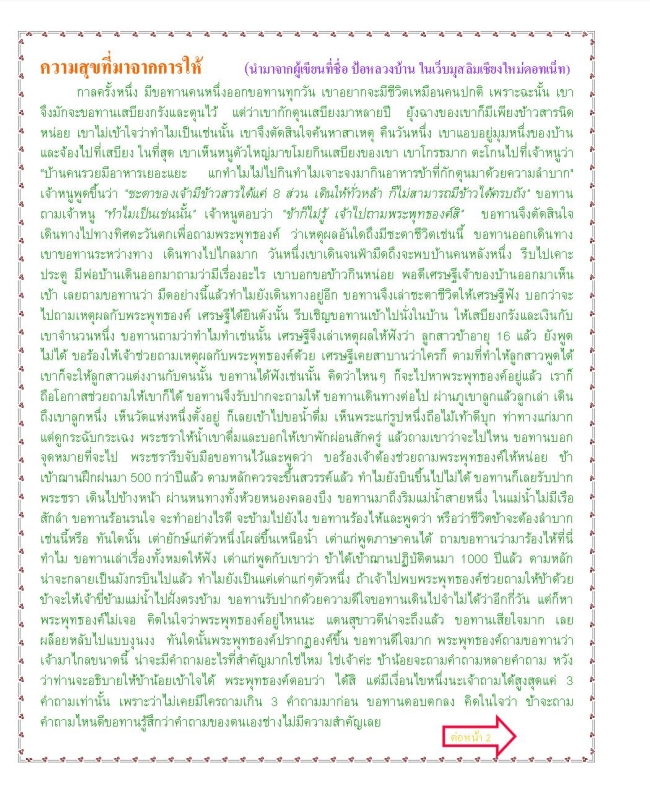 ความสุขที่มาจากการให้ (นำมาจากผู้เขียนที่ชื่อ ป้อหลวงบ้าน ในเว็บมุสลิมเชียงใหม่ดอทเน็ท)
กาลครั้งหนึ่ง มีขอทานคนหนึ่งออกขอทานทุกวัน เขาอยากจะมีชีวิตเหมือนคนปกติ เพราะฉะนั้น เขา
จึงมักจะขอทานเสบียงกรังและตุนไว้ แต่ว่าเขากักตุนเสบียงมาหลายปี ยุ้งฉางของเขาก็มีเพียงข้าวสารนิด
หน่อย เขาไม่เข้าใจว่าทำไมเป็นเช่นนั้น เขาจึงตัดสินใจค้นหาสาเหตุ คืนวันหนึ่ง เขาแอบอยู่มุมหนึ่งของบ้าน
และจ้องไปที่เสบียง ในที่สุด เขาเห็นหนูตัวใหญ่มาขโมยกินเสบียงของเขา เขาโกรธมาก ตะโกนไปที่เจ้าหนูว่า
"บ้านคนรวยมีอาหารเยอะแยะ แกทำไมไม่ไปกินทำไมเจาะจงมากินอาหารข้าที่กักตุนมาด้วยความลำบาก"
เจ้าหนูพูดขึ้นว่า "ชะตาของเจ้ามีข้าวสารได้แค่ 8 ส่วน เดินให้ทั่วหล้า ก็ไม่สามารถมีข้าวได้ครบถัง" ขอทาน
ถามเจ้าหนู "ทำไมเป็นเช่นนั้น" เจ้าหนูตอบว่า "ข้าก็ไม่รู้ เจ้าไปถามพระพุทธองค์สิ" ขอทานจึงตัดสินใจ
เดินทางไปทางทิศตะวันตกเพื่อถามพระพุทธองค์ ว่าเหตุผลอันใดถึงมีชะตาชีวิตเช่นนี้ ขอทานออกเดินทาง
เขาขอทานระหว่างทาง เดินทางไปไกลมาก วันหนึ่งเขาเดินจนฟ้ามืดถึงจะพบบ้านคนหลังหนึ่ง รีบไปเคาะ
ประตู มีพ่อบ้านเดินออกมาถามว่ามีเรื่องอะไร เขาบอกขอข้าวกินหน่อย พอดีเศรษฐีเจ้าของบ้านออกมาเห็น
เข้า เลยถามขอทานว่า มืดอย่างนี้แล้วทำไมยังเดินทางอยู่อีก ขอทานจึงเล่าชะตาชีวิตให้เศรษฐีฟัง บอกว่าจะ
ไปถามเหตุผลกับพระพุทธองค์ เศรษฐีได้ยินดังนั้น รีบเชิญขอทานเข้าไปนั่งในบ้าน ให้เสบียงกรังและเงินกับ
เขาจำนวนหนึ่ง ขอทานถามว่าทำไมทำเช่นนั้น เศรษฐีจึงเล่าเหตุผลให้ฟังว่า ลูกสาวข้าอายุ 16 แล้ว ยังพูด
ไม่ได้ ขอร้องให้เจ้าช่วยถามเหตุผลกับพระพุทธองค์ด้วย เศรษฐีเคยสาบานว่าใครก็ ตามที่ทำให้ลูกสาวพูดได้
เขาก็จะให้ลูกสาวแต่งงานกับคนนั้น ขอทานได้ฟังเช่นนั้น คิดว่าไหนๆ ก็จะไปหาพระพุทธองค์อยู่แล้ว เราก็
ถือโอกาสช่วยถามให้เขาก็ได้ ขอทานจึงรับปากจะถามให้ ขอทานเดินทางต่อไป ผ่านภูเขาลูกแล้วลูกเล่า เดิน
ถึงเขาลูกหนึ่ง เห็นวัดแห่งหนึ่งตั้งอยู่ ก็เลยเข้าไปขอน้ำดื่ม เห็นพระแก่รูปหนึ่งถือไม้เท้าดีบุก ท่าทางแก่มาก
แต่ดูกระฉับกระเฉง พระชราให้น้ำเขาดื่มและบอกให้เขาพักผ่อนสักครู่ แล้วถามเขาว่าจะไปไหน ขอทานบอก
จุดหมายที่จะไป พระชรารีบจับมือขอทานไว้และพูดว่า ขอร้องเจ้าต้องช่วยถามพระพุทธองค์ให้หน่อย ข้า
เข้าฌานฝึกฝนมา 500 กว่าปีแล้ว ตามหลักควรจะขึ้นสวรรค์แล้ว ทำไมยังบินขึ้นไปไม่ได้ ขอทานก็เลยรับปาก
พระชรา เดินไปข้างหน้า ผ่านหนทางทั้งห้วยหนองคลองบึง ขอทานมาถึงริมแม่น้ำสายหนึ่ง ในแม่น้ำไม่มีเรือ
สักลำ ขอทานร้อนรนใจ จะทำอย่างไรดี จะข้ามไปยังไง ขอทานร้องไห้และพูดว่า หรือว่าชีวิตข้าจะต้องลำบาก
เช่นนี้หรือ ทันใดนั้น เต่ายักษ์แก่ตัวหนึ่งโผล่ขึ้นเหนือน้ำ เต่าแก่พูดภาษาคนได้ ถามขอทานว่ามาร้องไห้ที่นี่
ทำไม ขอทานเล่าเรื่องทั้งหมดให้ฟัง เต่าแก่พูดกับเขาว่า ข้าได้เข้าฌานปฏิบัติตนมา 1000 ปีแล้ว ตามหลัก
น่าจะกลายเป็นมังกรบินไปแล้ว ทำไมยังเป็นแค่เต่าแก่ๆตัวหนึ่ง ถ้าเจ้าไปพบพระพุทธองค์ช่วยถามให้ข้าด้วย
ข้าจะให้เจ้าขี่ข้ามแม่น้ำไปฝั่งตรงข้าม ขอทานรับปากด้วยความดีใจขอทานเดินไปจำไม่ได้ว่าอีกกี่วัน แต่ก็หา
พระพุทธองค์ไม่เจอ คิดในใจว่าพระพุทธองค์อยู่ไหนนะ แดนสุขาวดีน่าจะถึงแล้ว ขอทานเสียใจมาก เลย
ผล็อยหลับไปแบบงุนงง ทันใดนั้นพระพุทธองค์ปรากฏองค์ขึ้น ขอทานดีใจมาก พระพุทธองค์ถามขอทานว่า
เจ้ามาไกลขนาดนี้ น่าจะมีคำถามอะไรที่สำคัญมากใช่ไหม ใช่เจ้าค่ะ ข้าน้อยจะถามคำถามหลายคำถาม หวัง
ว่าท่านจะอธิบายให้ข้าน้อยเข้าใจได้ พระพุทธองค์ตอบว่า ได้สิ แต่มีเงื่อนไขหนึ่งนะเจ้าถามได้สูงสุดแค่ 3
คำถามเท่านั้น เพราะว่าไม่เคยมีใครถามเกิน 3 คำถามมาก่อน ขอทานตอบตกลง คิดในใจว่า ข้าจะถาม
คำถามไหนดีขอทานรู้สึกว่าคำถามของตนเองช่างไม่มีความสำคัญเลย
ต่อหน้า 2